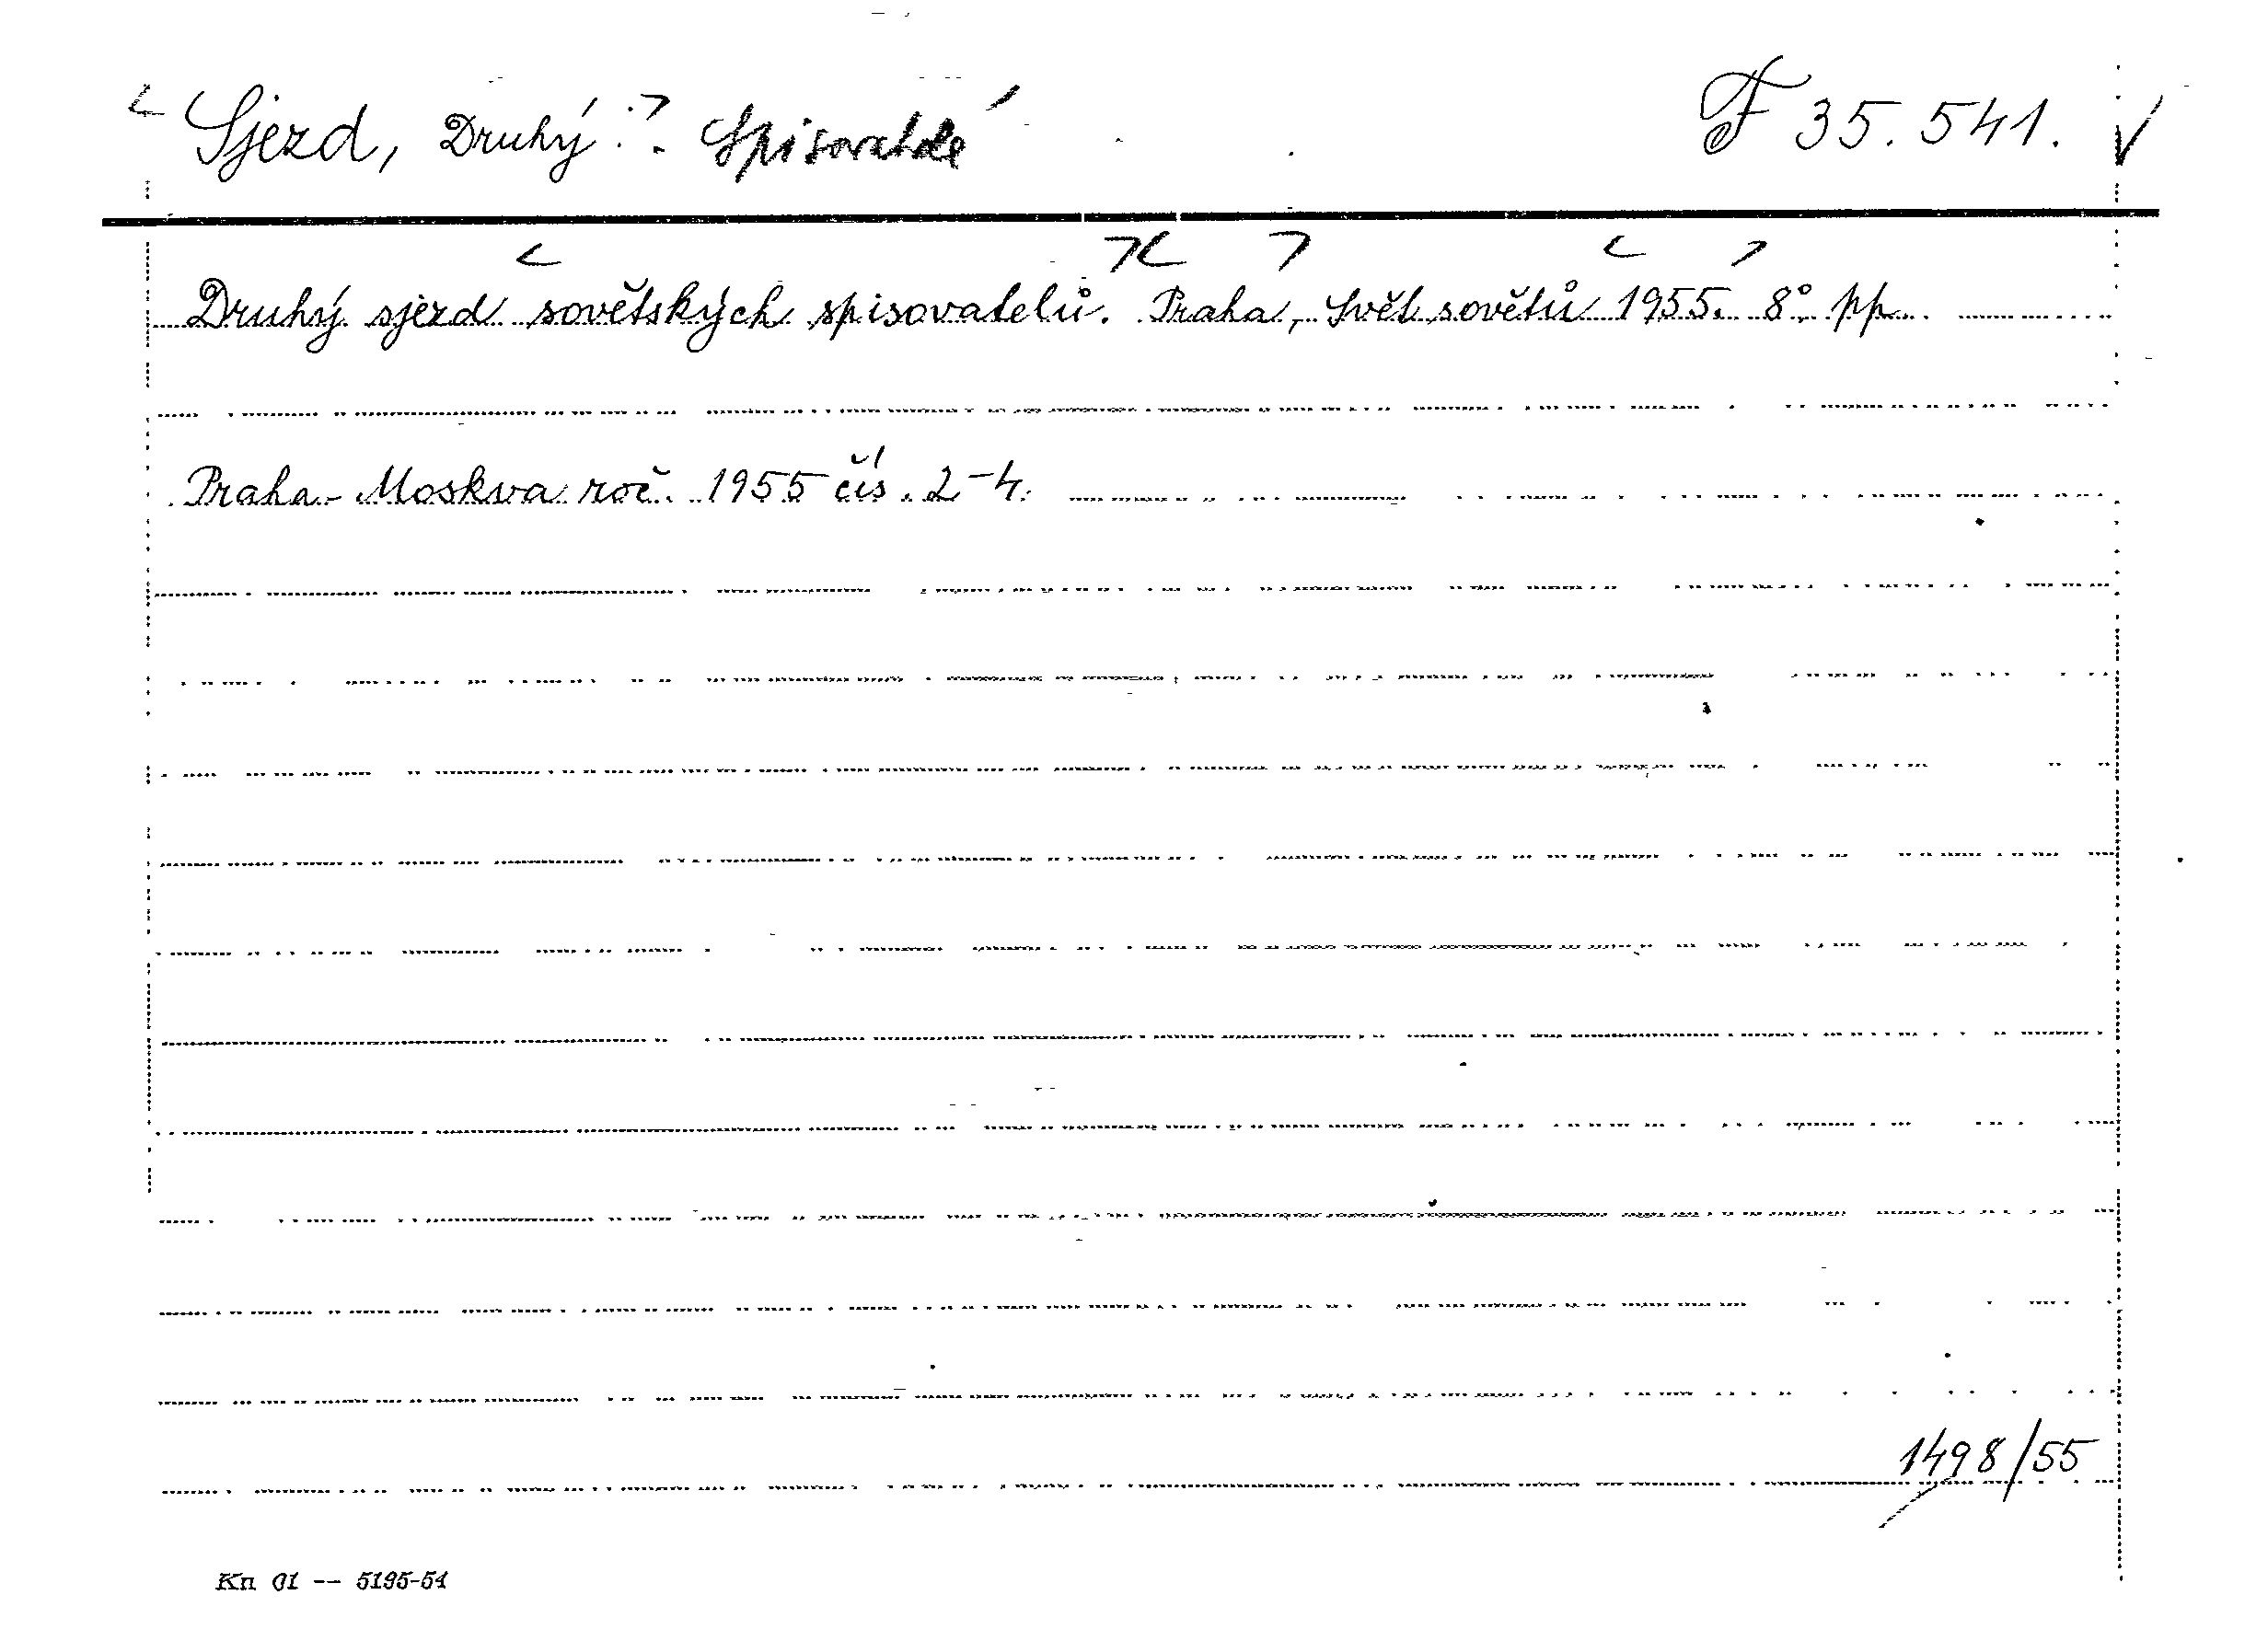 < Sjezd, Druhý. > . Spisovatelé F 35.541. √
Druhý sjezd sovětských spisovatelů. Praha, Svět sovětů 1955. 8°. pp.
Praha - Moskva roč. 1955 čís. 2-4.
1498/55
Kn 01 -- 5195-54